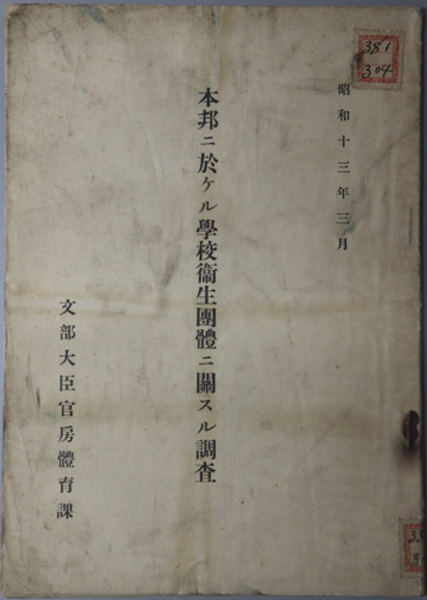 381
304
昭和十三年三月
本邦ニ於ケル學校衞生團體ニ關スル調査
文部大臣官房體育課